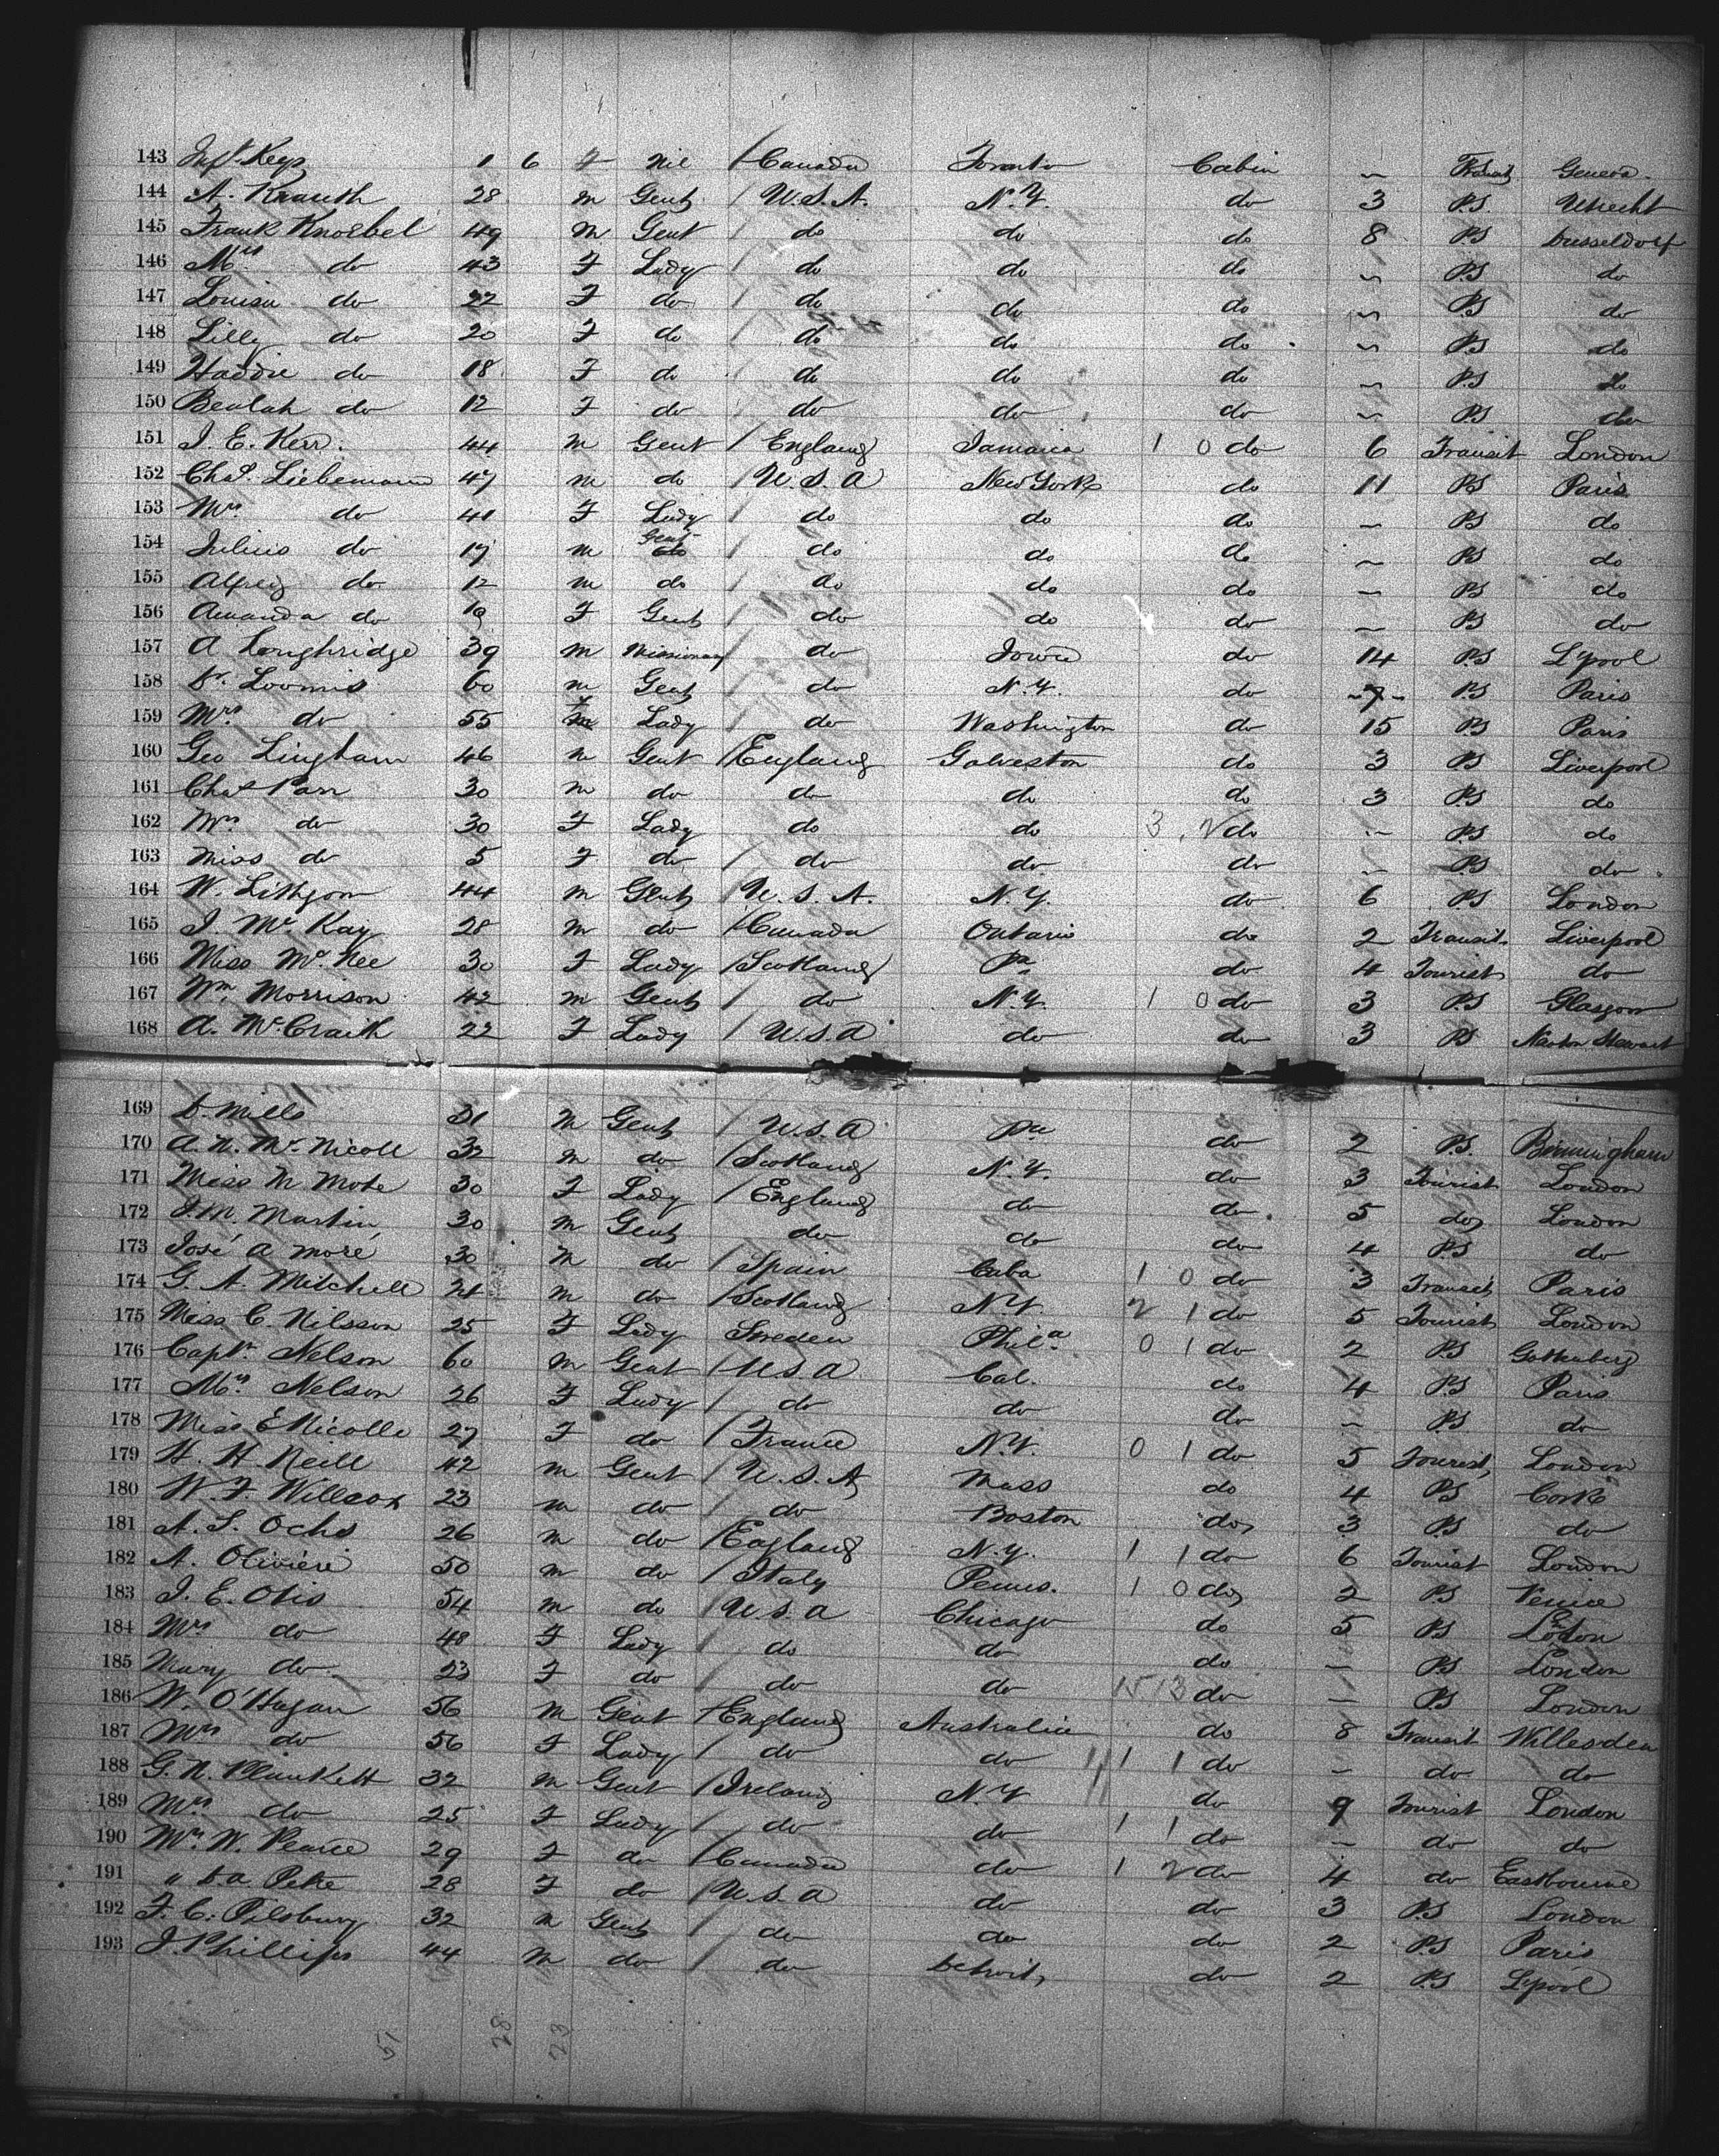 143 Inft. Keys 1 6 F Nil / Canada Toronto Cabin ~ Transit Geneva
144 A. Krauth 28 m Gent / U.S.A. N.Y. do 3 P.S. Utrecht
145 Frank Knoebel 49 m Gent / do do do 8 P.S Dusseldorf
146 Mrs do 43 F Lady / do do do ~ P.S do
147 Louisa do 22 F do / do do do ~ P.S do
148 Lilly do 20 F do do do do ~ P.S do
149 Haddie do 18 F do do do do ~ P.S do
150 Beulah do 12 F do do do do ~ P.S do
151 J. E. Kerr. 44 m Gent / England Jamaica 1 0 do 6 Transit London
152 Chas. Liebemann 47 m do / U.S.A New York do 11 P.S Paris
153 Mrs do 41 F Lady / do do do ~ P.S do
154 Julius do 17 m Gent / do do do ~ P.S do
155 Alfred do 12 m do / do do do ~ P.S do
156 Amanda do 19 F Gent / do do do ~ P.S do
157 A Longhridge 39 m Missionary do Iowa do 14 P.S L'pool
158 Dr. Loomis 60 m Gent / do N.Y. do 7 P.S Paris
159 Mrs do 55 F Lady / do Washington do 15 P.S Paris
160 Geo Lingham 46 m Gent / England Galveston do 3 P.S Liverpool
161 Chas Parr 30 m do do do do 3 P.S do
162 Mrs do 30 F Lady do do 3 2 do ~ P.S do
163 Miss do 5 F do / do do do ~ P.S do
164 W. Lithgow 44 m Gent / U.S.A. N.Y. do 6 P.S London
165 J. McKay 28 m do / Canada Ontario do 2 Transit Liverpool
166 Miss McNee 30 F Lady / Scotland Pa do 4 Tourist do
167 Wm. Morrison 42 m Gent / do N.Y. 1 0 do 3 P.S Glasgow
168 A. McCraith 22 F Lady / U.S.A do do 3 P.S Newton Stewart
169 D. Mills 31 m Gent / U.S.A Pa do 2 P.S. Birmingham
170 A. N. McNicoll 32 m do / Scotland N.Y. do 3 Tourist London
171 Miss M Mote 30 F Lady / England do do 5 do London
172 J. M. Martin 30 m Gent do do do 4 P.S do
173 José A Moré 30 m do / Spain Cuba 1 0 do 3 Transit Paris
174 G. A. Mitchell 24 m do / Scotland N.Y. 2 1 do 5 Tourist London
175 Miss C. Nilsson 25 F Lady Sweden Phila 0 1 do 2 P.S Gothenberg
176 Capt. Nelson 60 m Gent / U.S.A Cal. do 4 P.S Paris
177 Mrs Nelson 26 F Lady / do do do ~ P.S do
178 Miss E Nicolle 27 F do / France N.Y. 0 1 do 5 Tourist London
179 H. H. Neill 42 m Gent / U.S.A Mass do 4 P.S Cork
180 W. F. Willcox 23 m do / do Boston do 3 P.S do
181 A. S. Ochs 26 m do / England N.Y. 1 1 do 6 Tourist London
182 A. Olivieri 50 m do / Italy Penns. 1 0 do 2 P.S Venice
183 J. E. Otis 54 m do / U.S.A Chicago do 5 P.S London
184 Mrs do 48 F Lady / do do do ~ P.S London
185 Mary do 23 F do / do do 15 13 do ~ P.S London
186 W. O'Hagan 56 m Gent / England Australia do 8 Transit Willesden
187 Mrs do 56 F Lady / do do 1 1 do ~ do do
188 G. N. Plunkett 32 m Gent / Ireland N.Y do 9 Tourist London
189 Mrs do 25 F Lady / do do 1 1 do ~ do do
190 Mrs W. Pearce 29 F do / Canada do 1 2 do 4 do Eastbourne
191 " D. A. Peke 28 F do / U.S.A do do 3 P.S London
192 F. C. Pilsbury 32 m Gent / do do do 2 P.S Paris
193 J. Phillips 44 m do / do Detroit do 2 P.S L'pool
51 28 23